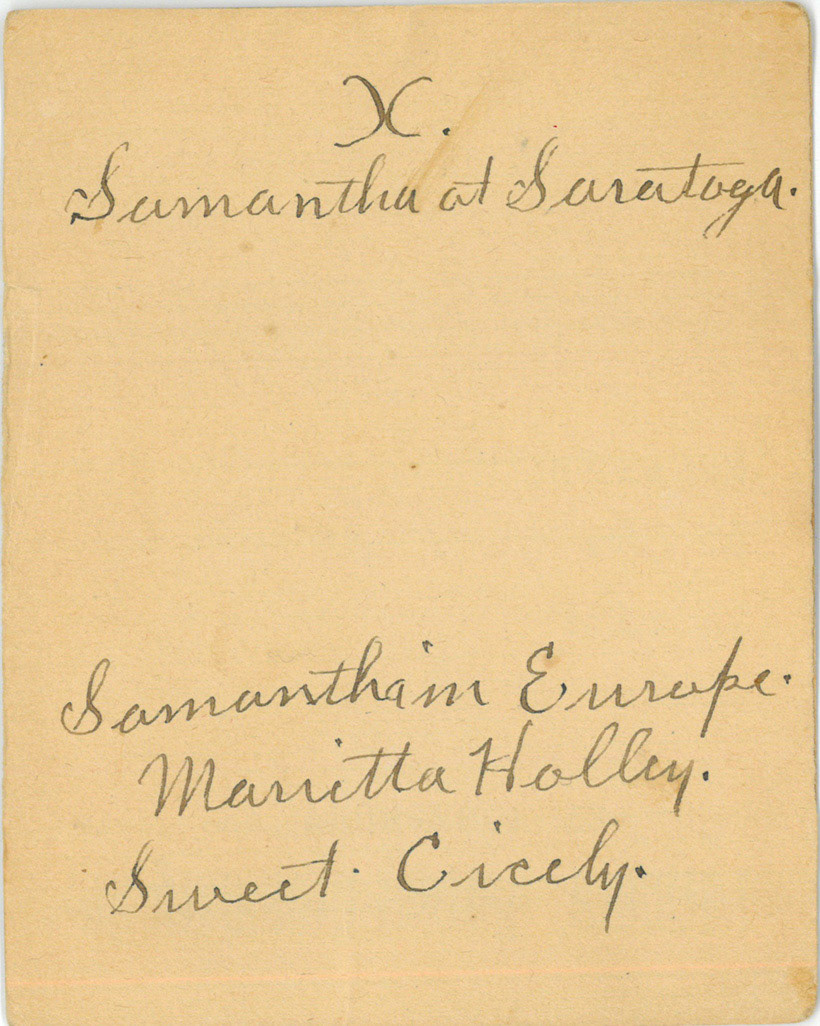 X.
Samantha at Saratoga.
Samantha in Europe.
Marietta Holley.
Sweet. Cicely.